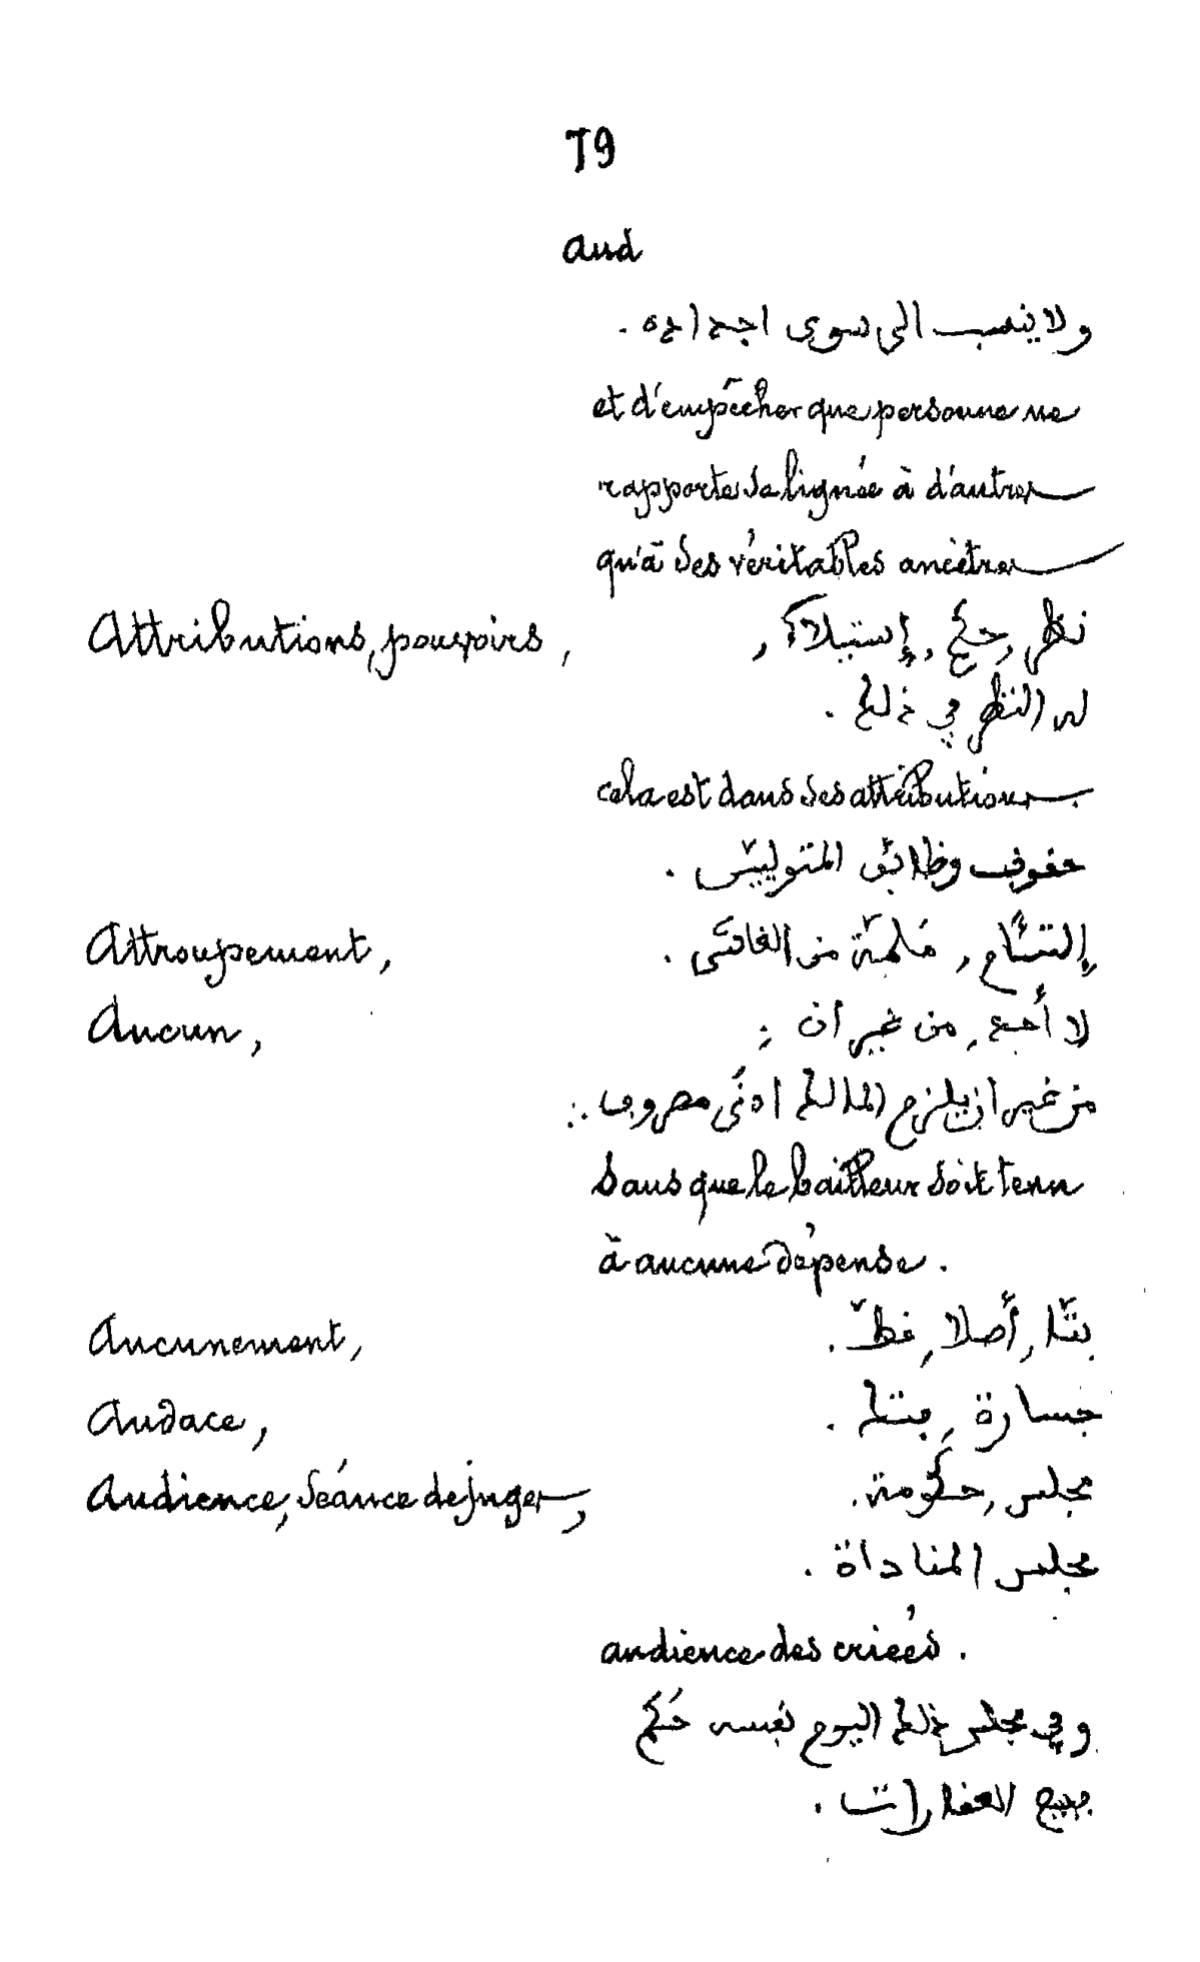 79
aud
ولا ينسب الى سوى اجداده .
et d'empêcher que personne ne
rapporte sa lignée à d'autres
qu'à ses véritables ancêtres
Attributions, pouvoirs, نظر, حكم, إستيلاءً,
له النظر في ذلك .
cela est dans ses attributions.
حقوق وظائف المتوليين .
Attroupement, إلتئام, من الغاشى .
Aucun, لا أحد, من غير أن :
من غير ان يلزم المالك ادنى مصروف :.
sans que le bailleur soit tenu
à aucune dépense .
Aucunement, بتّا, أصلا, قطّ .
Audace, جسارة, .
Audience, séance de juger, مجلس, حكومة .
مجلس المناداة .
audience des criées .
وفي مجلس ذلك اليوم نفسه حَكَم
ببيع العقارات .